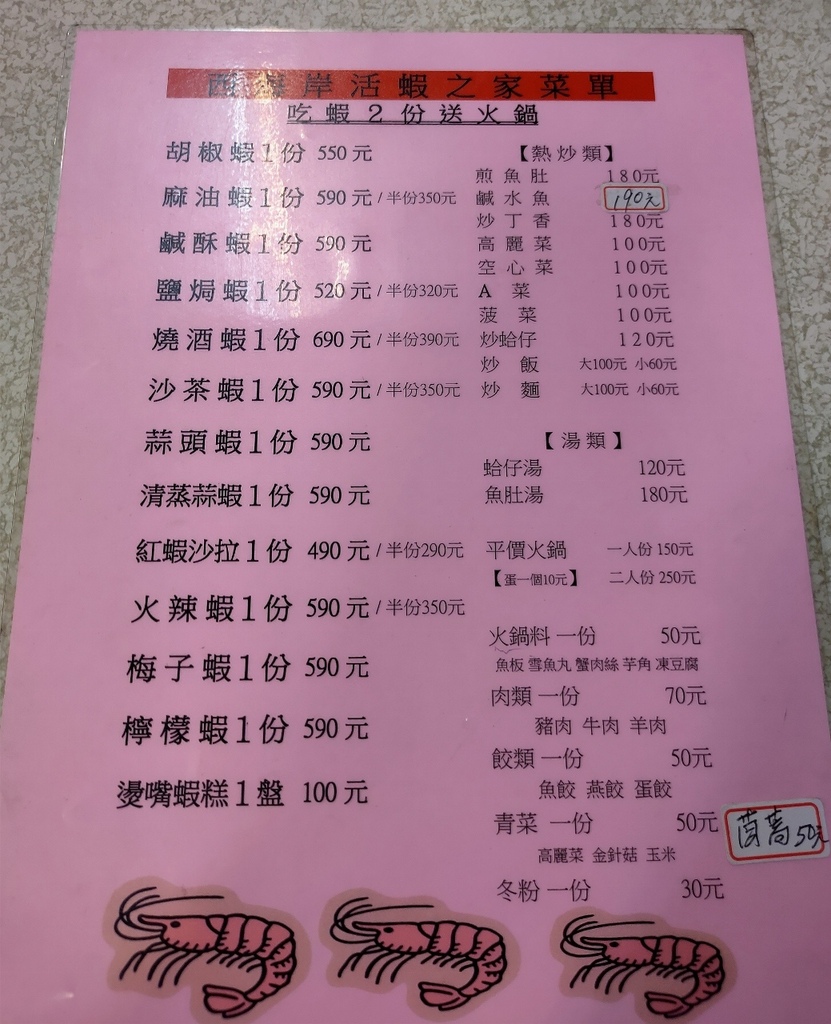 西海岸活蝦之家菜單
吃蝦2份送火鍋
胡椒蝦1份 550元
麻油蝦1份 590元/半份350元
鹹酥蝦1份 590元
鹽焗蝦1份 520元/半份320元
燒酒蝦1份 690元/半份390元
沙茶蝦1份 590元/半份350元
蒜頭蝦1份 590元
清蒸蒜蝦1份 590元
紅蝦沙拉1份 490元/半份290元
火辣蝦1份 590元/半份350元
梅子蝦1份 590元
檸檬蝦1份 590元
燙嘴蝦糕1盤 100元
【熱炒類】
煎魚肚 180元
鹹水魚 190元
炒丁香 180元
高麗菜 100元
空心菜 100元
A菜 100元
菠菜 100元
炒蛤仔 120元
炒飯 大100元 小60元
炒麵 大100元 小60元
【湯類】
蛤仔湯 120元
魚肚湯 180元
平價火鍋 一人份 150元
【蛋一個10元】 二人份 250元
火鍋料 一份 50元
魚板 雪魚丸 蟹肉絲 芋角 凍豆腐
肉類 一份 70元
豬肉 牛肉 羊肉
餃類 一份 50元
魚餃 燕餃 蛋餃
青菜 一份 50元
茼蒿50元
高麗菜 金針菇 玉米
冬粉 一份 30元